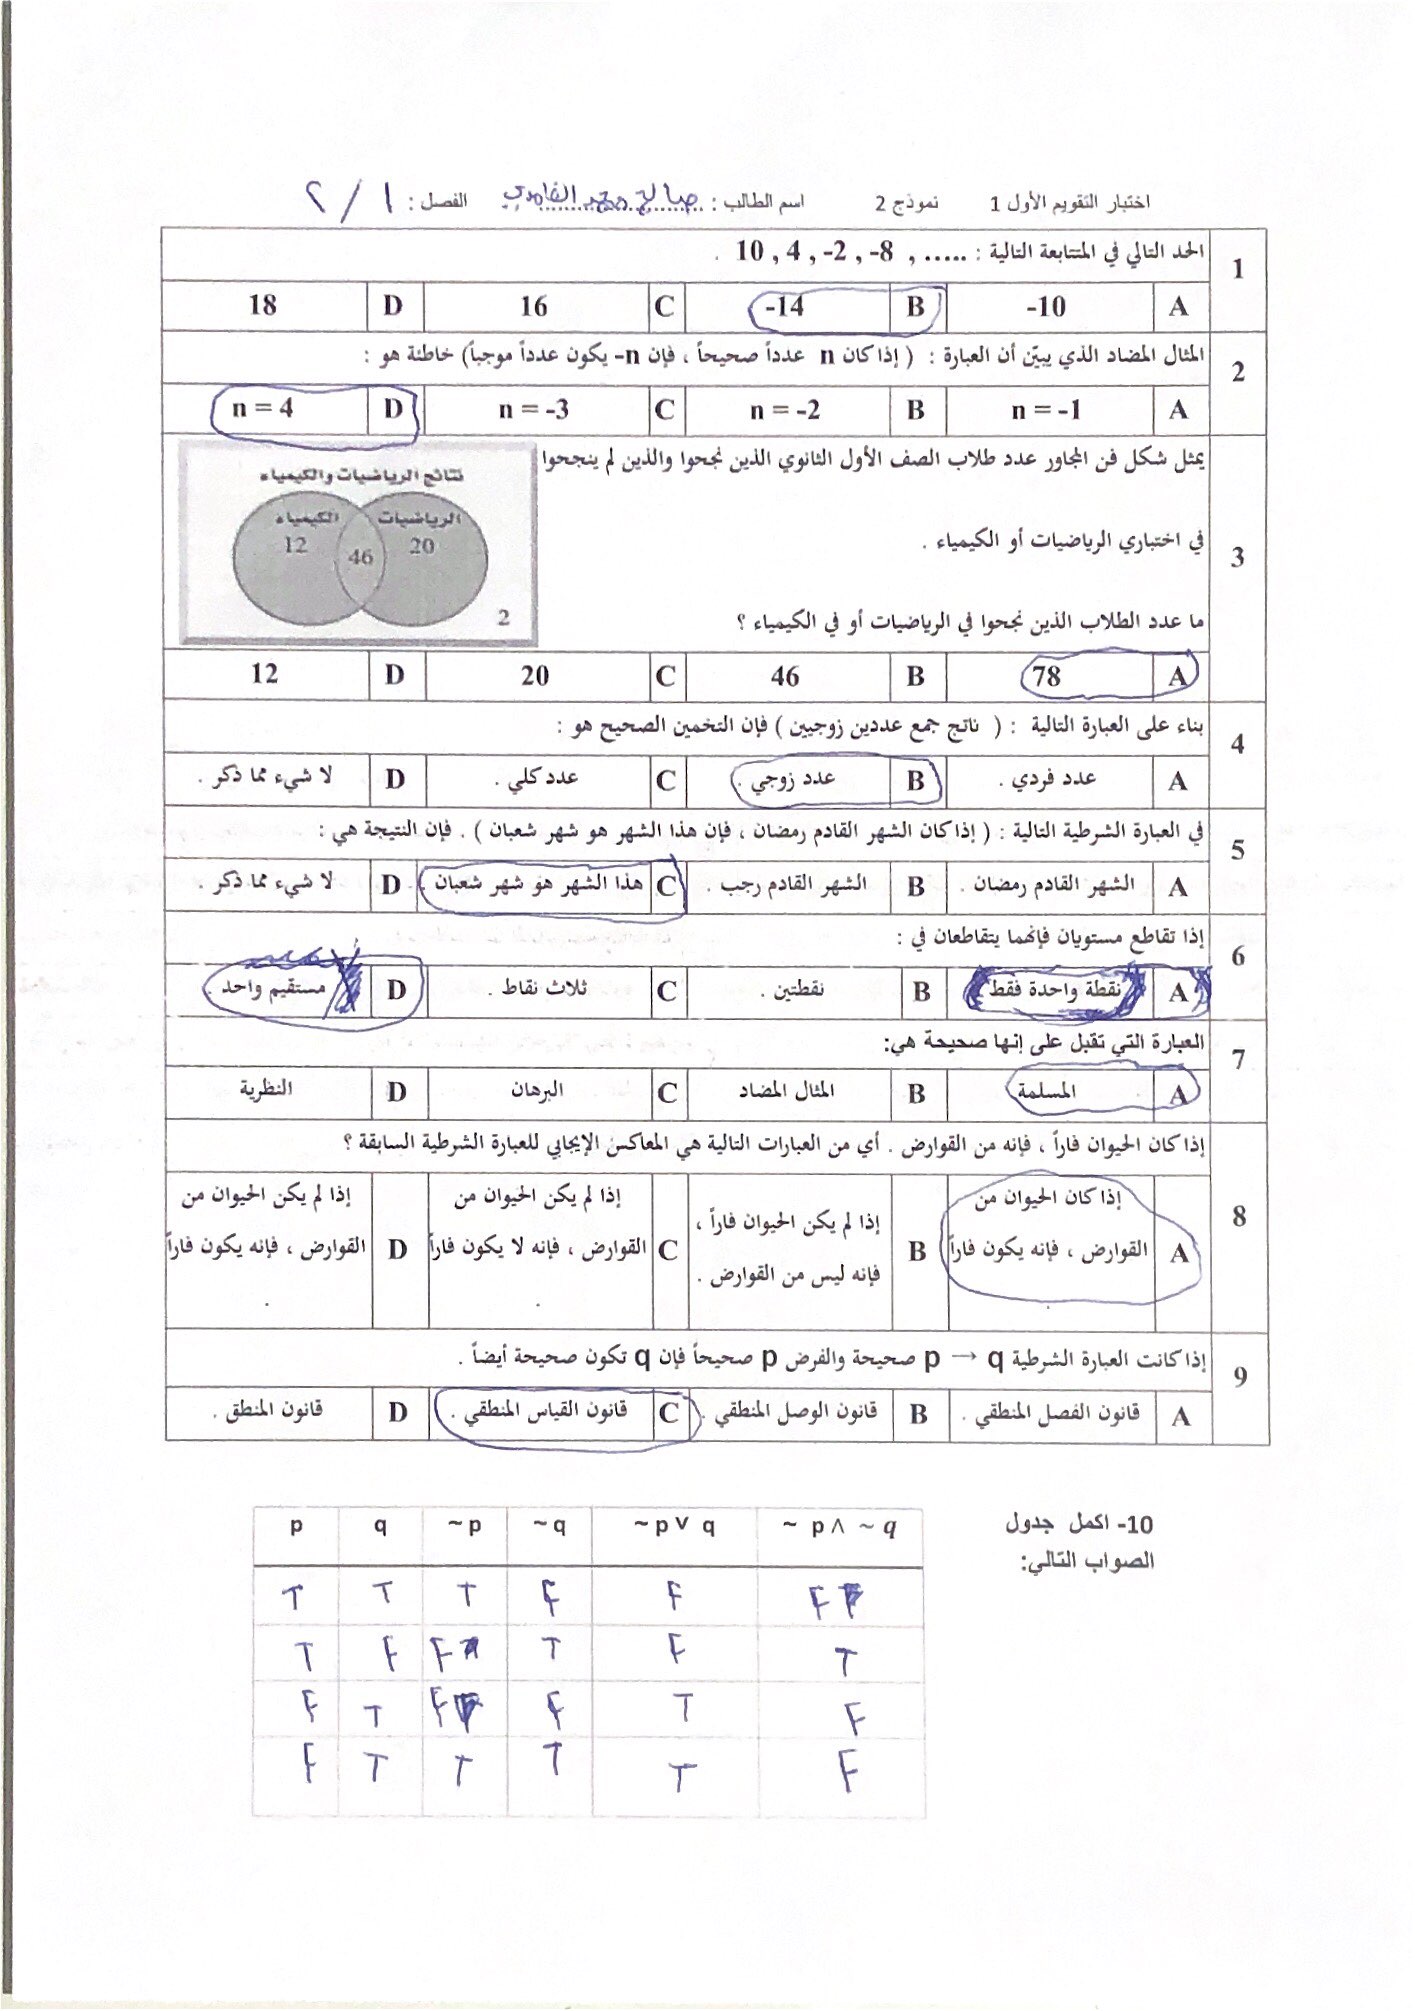 اختبار التقويم الأول 1 نموذج 2 اسم الطالب : صالح محمد الغامدي الفصل : ١ / ٢
1 الحد التالي في المتتابعة التالية : 10 , 4 , -2 , -8 , ..... .
A -10 B -14 C 16 D 18
2 المثال المضاد الذي يبيّن أن العبارة : ( إذا كان n عدداً صحيحاً ، فإن n- يكون عدداً موجباً) خاطئة هو :
A n = -1 B n = -2 C n = -3 D n = 4
3 يمثل شكل فن المجاور عدد طلاب الصف الأول الثانوي الذين نجحوا والذين لم ينجحوا
في اختباري الرياضيات أو الكيمياء .
ما عدد الطلاب الذين نجحوا في الرياضيات أو في الكيمياء ؟
نتائج الرياضيات والكيمياء
الرياضيات الكيمياء
20 46 12
2
A 78 B 46 C 20 D 12
4 بناء على العبارة التالية : ( ناتج جمع عددين زوجيين ) فإن التخمين الصحيح هو :
A عدد فردي . B عدد زوجي . C عدد كلي . D لا شيء مما ذكر .
5 في العبارة الشرطية التالية : ( إذا كان الشهر القادم رمضان ، فإن هذا الشهر هو شهر شعبان ) . فإن النتيجة هي :
A الشهر القادم رمضان . B الشهر القادم رجب . C هذا الشهر هو شهر شعبان . D لا شيء مما ذكر .
6 إذا تقاطع مستويان فإنهما يتقاطعان في :
A نقطة واحدة فقط B نقطتين . C ثلاث نقاط . D مستقيم واحد .
7 العبارة التي تقبل على إنها صحيحة هي:
A المسلمة B المثال المضاد C البرهان D النظرية
8 إذا كان الحيوان فاراً ، فإنه من القوارض . أي من العبارات التالية هي المعاكس الإيجابي للعبارة الشرطية السابقة ؟
A إذا كان الحيوان من القوارض ، فإنه يكون فاراً .
B إذا لم يكن الحيوان فاراً ، فإنه ليس من القوارض .
C إذا لم يكن الحيوان من القوارض ، فإنه لا يكون فاراً .
D إذا لم يكن الحيوان من القوارض ، فإنه يكون فاراً .
9 إذا كانت العبارة الشرطية p → q صحيحة والفرض p صحيحاً فإن q تكون صحيحة أيضاً .
A قانون الفصل المنطقي . B قانون الوصل المنطقي . C قانون القياس المنطقي . D قانون المنطق .
10- اكمل جدول
الصواب التالي:
p q ~p ~q ~p ∨ q ~ p ∧ ~ q
T T T F F F
T F F T F T
F T F F T F
F T T T T F